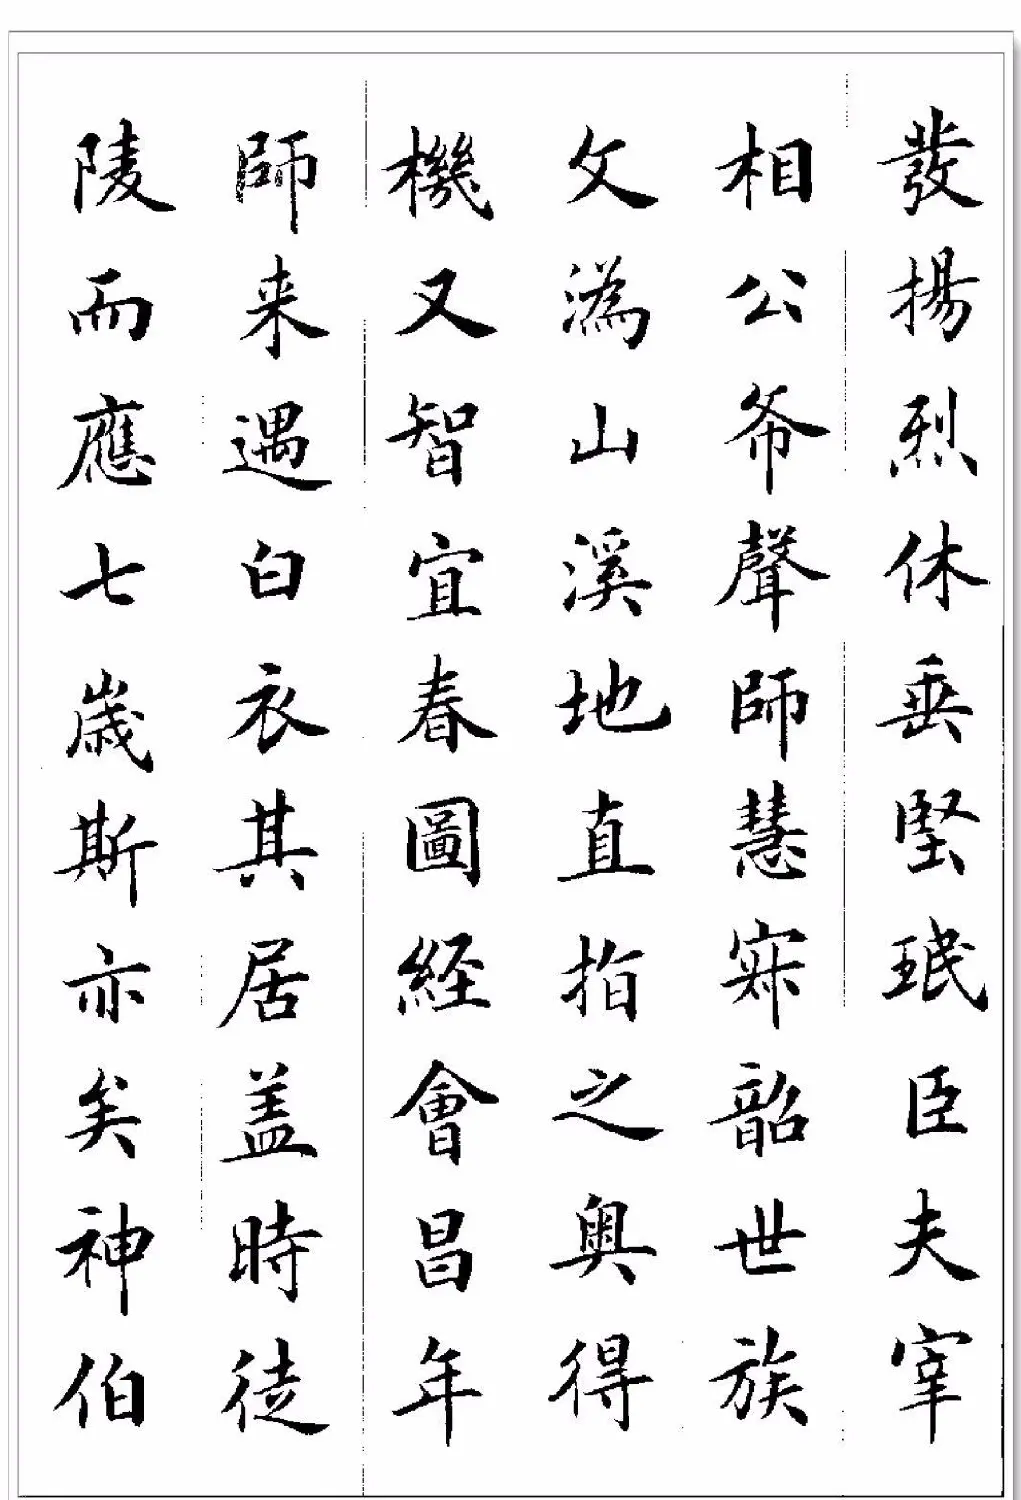 發揚烈休垂堅珉臣夫宰
相公爺聲師慧寂韶世族
文溈山溪地直指之奥得
機又智宜春圖経會昌年
師来遇白衣其居盖時徒
陵而應七歲斯亦矣神伯